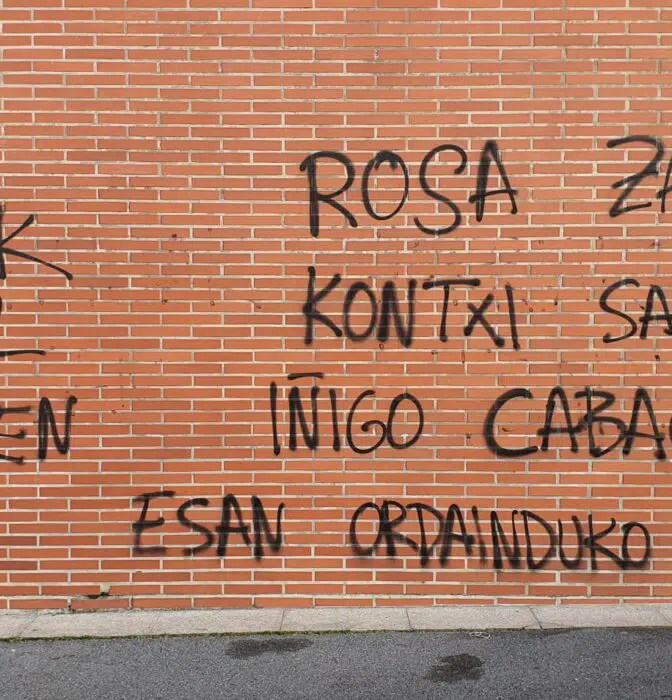 ROSA ZA
KONTXI SA
IÑIGO CABA
ESAN ORDAINDUKO
K
EN